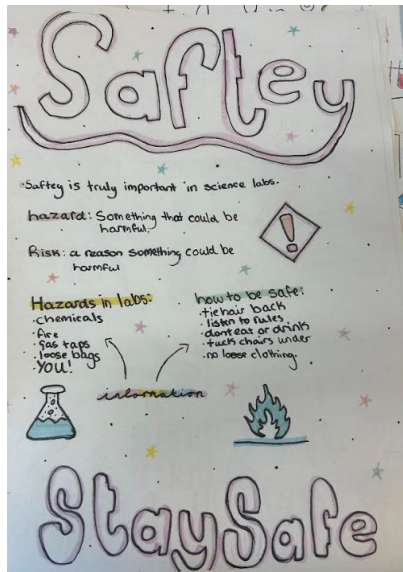 Saftey
Saftey is truly important in science labs.
hazard: Something that could be
harmful.
Risk: a reason something could be
harmful
Hazards in labs:
• chemicals
• fire
• gas taps
• loose bags
• YOU!
how to be safe:
• tie hair back
• listen to rules
• dont eat or drink
• tuck chairs under
• no loose clothing.
information
Stay Safe